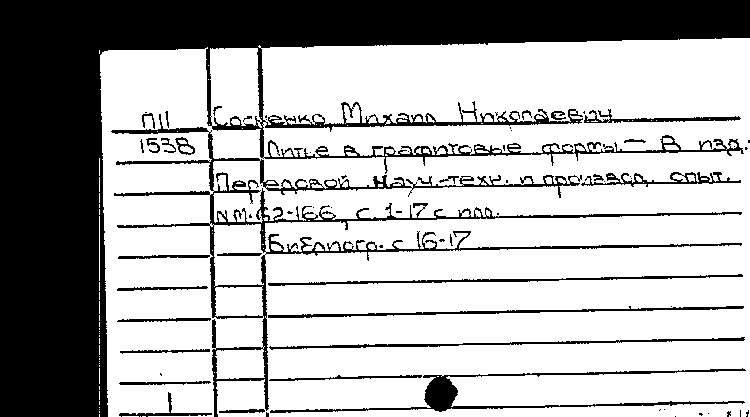 П11 Сосненко, Михаил Николаевич
1538 Литье в графитовые формы. — В изд.:
Передовой науч.-техн. и производ. опыт.
N М-62-166, с. 1-17 с илл.
Библиогр. с 16-17
1